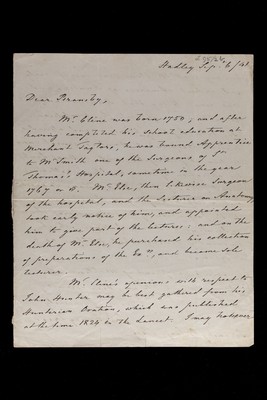 Hadley Sep. 6/41
Dear Bransby,
Mr. Cline was born 1750, and after
having completed his school education at
Merchant Taylors, he was bound Apprentice
to Mr Smith one of the Surgeons of St
Thomas's Hospital, sometime in the year
1767 or 8. Mr Else, then likewise Surgeon
of the hospital, and the Lecturer on Anatomy,
took early notice of him, and appointed
him to give part of the lectures: and on the
death of Mr Else, he purchased his collection
of preparations of the Exrs, and became sole
lecturer.
Mr. Cline's opinions with respect to
John Hunter may be best gathered from his
Hunterian Oration, which was published
at the time 1824 in the Lancet. I may however